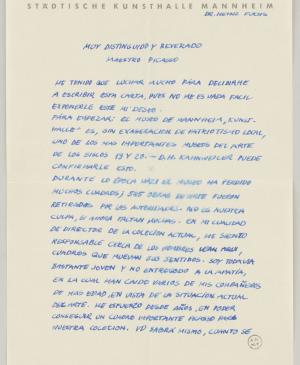 STÄDTISCHE KUNSTHALLE MANNHEIM
DR. HEINZ FUCHS
MUY DISTINGUIDO Y REVERADO
MAESTRO PICASSO
HE TENIDO QUE LUCHAR MUCHO PARA DECIDIRME
A ESCRIBIR ESTA CARTA, PUES NO ME ES NADA FACIL
EXPONERLE ESTE MI DESEO.
PARA EMPEZAR: EL MUSEO DE MANNHEIM, KUNST-
HALLE ES, SIN EXAGERACION DE PATRIOTISMO LOCAL,
UNO DE LOS MAS IMPORTANTES MUSEOS DEL ARTE
DE LOS SIGLOS 19 Y 20. — D.H. KAHNWEILER PUEDE
CONFIRMARLE ESTO.
DURANTE LA EPOCA NAZI EL MUSEO HA PERDIDO
MUCHOS CUADROS; OBRAS DE ARTE FUERON
RETIRADOS POR LAS AUTORIDADES. NO ES NUESTRA
CULPA, SI AHORA FALTAN MUCHAS. EN MI CUALIDAD
DE DIRECTOR DE LA COLECION ACTUAL, ME SIENTO
RESPONSABLE CERCA DE LOS HOMBRES
CUADROS QUE MUEVAN SUS SENTIDOS. SOY TODAVIA
BASTANTE JOVEN Y NO ENTREGADO A LA APATÍA,
EN LA CUAL HAN CAIDO VARIOS DE MIS COMPAÑEROS
DE MAS EDAD, EN VISTA DE LA SITUACION ACTUAL
DEL ARTE. ME ESFUERZO DESDE AÑOS, EN PODER
CONSEGUIR UN CUADRO IMPORTANTE PICASSO PARA
NUESTRA COLECION. VD SABRÁ MISMO, CUANTO SE